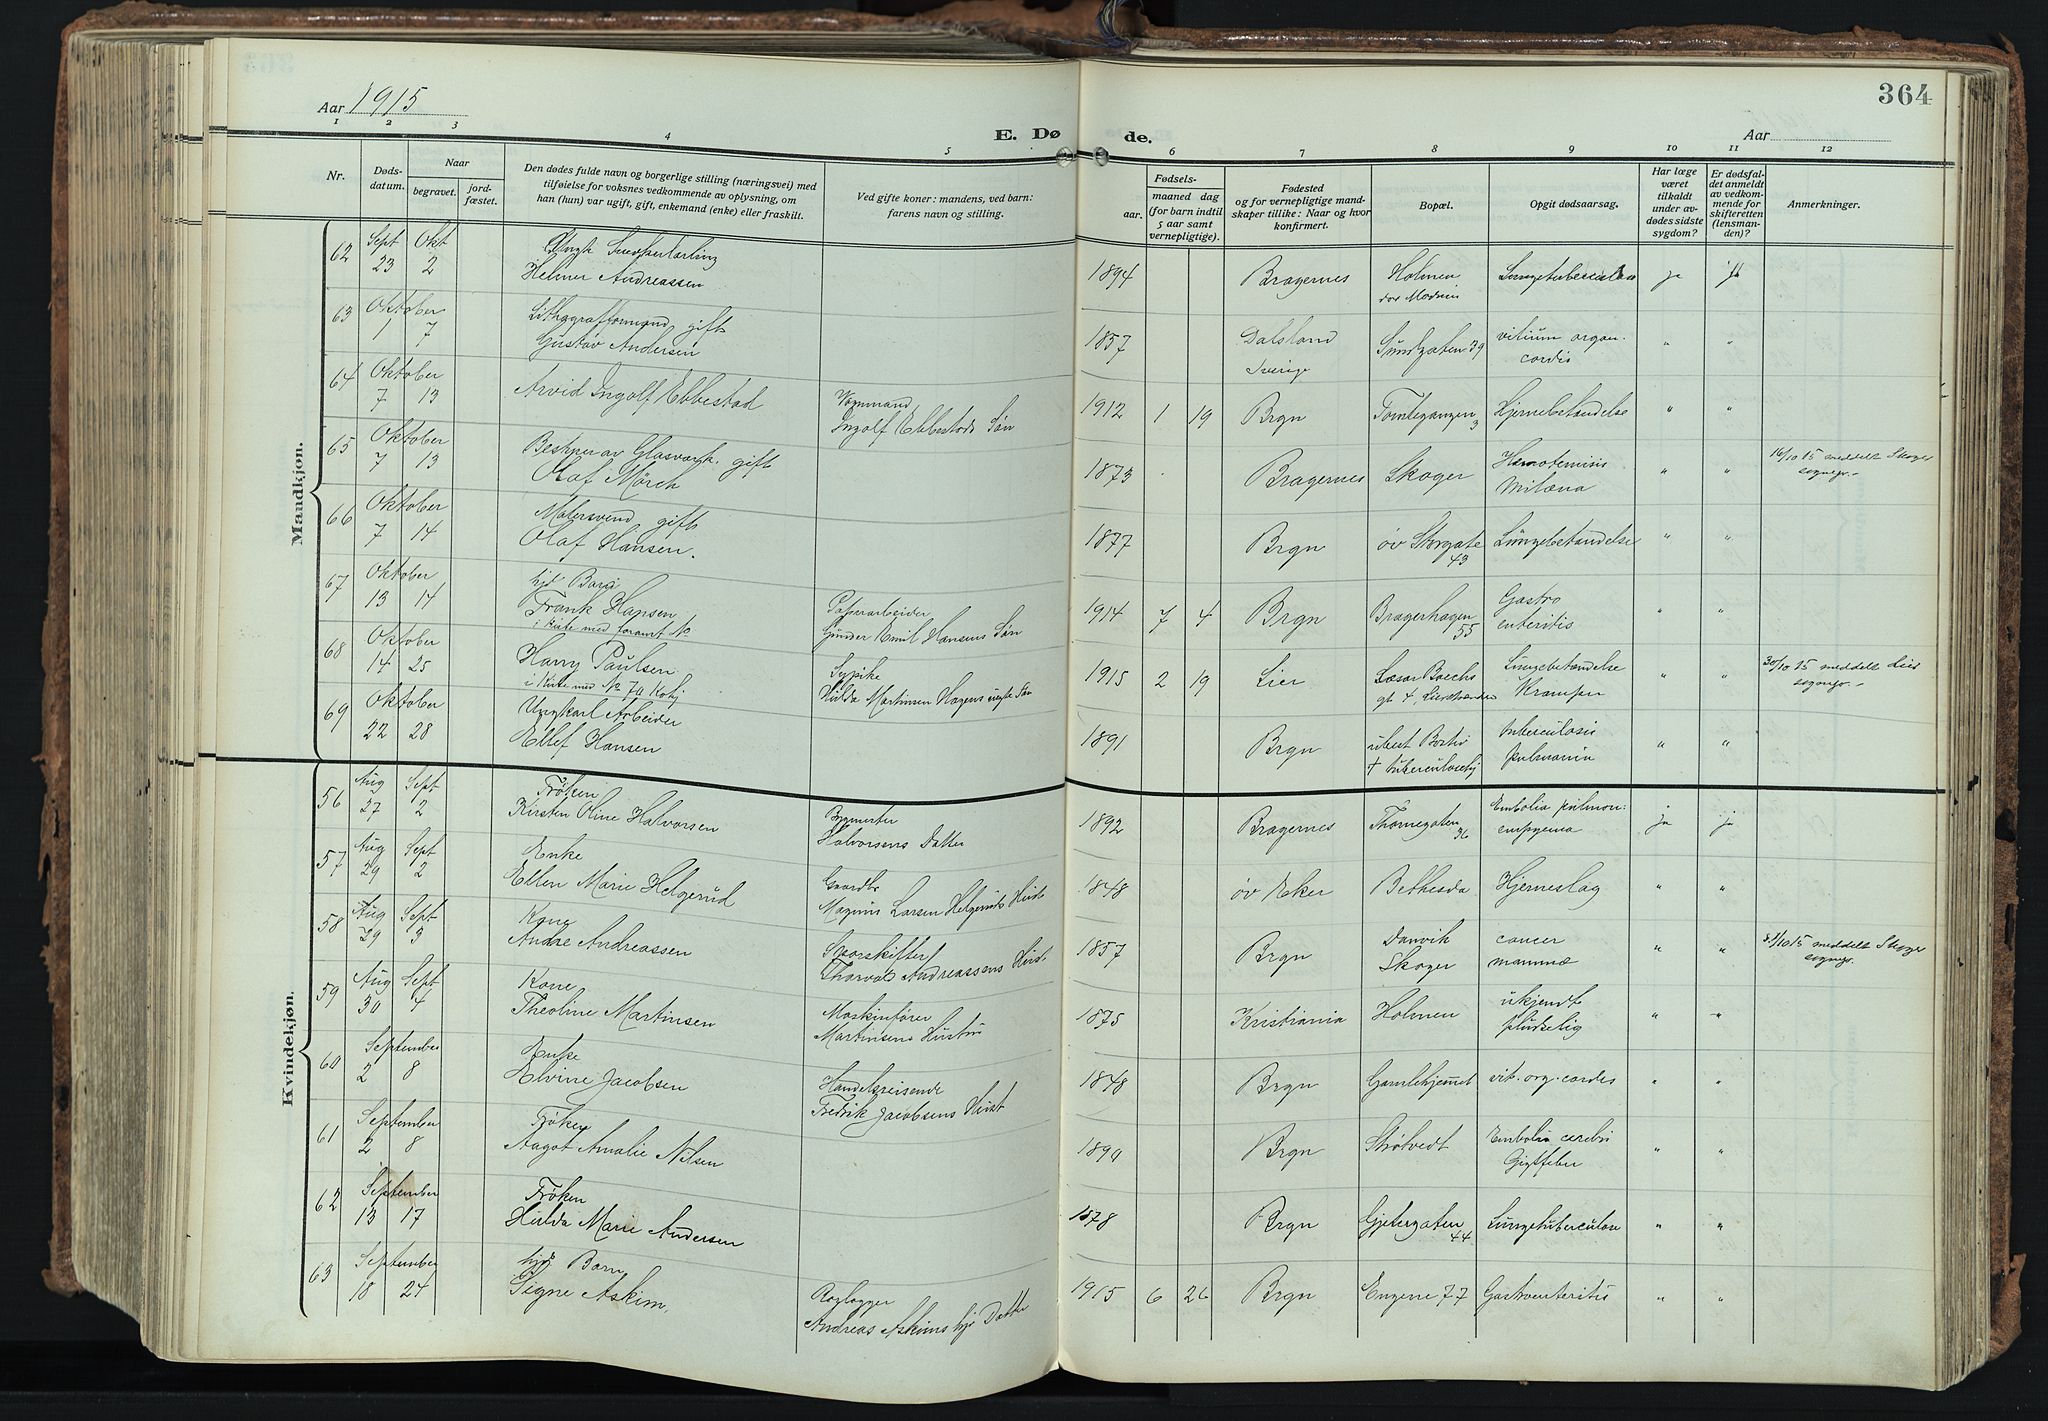 Aar 1915
E. Døde.
Aar
364
1 2 3 4 5 6 7 8 9 10 11 12
Nr.
Døds-
datum.
Naar
begravet.
jord-
fæstet.
Den dødes fulde navn og borgerlige stilling (næringsvei) med
tilføielse for voksnes vedkommende av oplysning, om
han (hun) var ugift, gift, enkemand (enke) eller fraskilt.
Ved gifte koner: mandens, ved barn:
farens navn og stilling.
Fødsels-
aar.
maaned dag
(for barn indtil
5 aar samt
vernepligtige).
Fødested
og for vernepligtige mand-
skaper tillike: Naar og hvor
konfirmert.
Bopæl.
Opgit dødsaarsag.
Har læge
været
tilkaldt
under av-
dødes sidste
sygdom?
Er dødsfal-
det anmeldt
av vedkom-
mende for
skifteretten
(lensman-
den)?
Anmerkninger.
Mandkjøn.
62 Sept 23 Okt 2
Helmer Andreassen
1894 Bragernes Holmen ja ja
63 Oktober 1 7 gift
Gustav Andersen
1857 Dalsland Sverige Sundgaten 39 vitium organ. cordis " "
64 Oktober 7 13 Arvid Ingolf Ebbestad
Ingolf Ebbestads Søn
1912 1 19 Brgn 3 Hjernebetændelse " "
65 Oktober 7 13 Bestyrer av Glasværk. gift
Olaf Mörch
1873 Bragernes Skoger " " 16/10 15 meddelt Skoger sognepr.
66 Oktober 7 14 Malersvend gift
Olaf Hansen.
1877 Brgn øv Storgate 43 Lungebetændelse " "
67 Oktober 13 14 Barn
Frank Hansen
Papirarbeider
Gunder Emil Hansens Søn
1914 7 4 Brgn Bragerhagen 55 Gastro enteritis " "
68 Oktober 14 25 Harry Paulsen
Sypike
Hulda Martinsen Hagens uegte Søn
1915 2 19 Lier Lungebetændelse Kramper " " 30/10 15 meddelt Lier sognepr.
69 Oktober 22 28 Ungkarl Arbeider
Ellef Hansen
1891 Brgn tuberculosis pulmonum " "
Kvindekjøn.
56 Aug 27 Sept 2 Frøken
Kirsten Oline Halvorsen
Bygmester
Halvorsens Datter
1892 Bragernes Thornegaten 36 Embolia pulmon: empyema ja ja
57 Aug 29 Sept 2 Enke
Ellen Marie Helgerud
Gaardbr
Magnus Larsen Helgeruds Hust
1848 øv Eker Bethesda Hjerneslag " "
58 Aug 29 Sept 3 Kone
Andre Andreassen
Thorval Andreassens Hust.
1857 Brgn Danvik Skoger cancer mammæ " " meddelt Skoger sognepr.
59 Aug 30 Sept 4 Kone
Theoline Martinsen
Maskinfører
Martinsens Hustru
1875 Kristiania Holmen ukjendt pludselig " "
60 September 2 8 Enke
Elvine Jacobsen
Handelsreisende
Fredrik Jacobsens Hust
1848 Brgn Gamlehjemmet vit. org. cordis " "
61 September 2 8 Frøken
Aagot Amalie Nilsen
1890 Brgn Strøtvedt Embolia cerebri Gigtfeber " "
62 September 13 17 Frøken
Hulda Marie Andersen
1878 Brgn Gjetergaten 44 Lungetuberculose " "
63 September 18 24 Barn
Signe Askim,
Rørlægger
Andreas Askims Datter
1915 6 26 Brgn Engene 77 Gastroenteritis " "